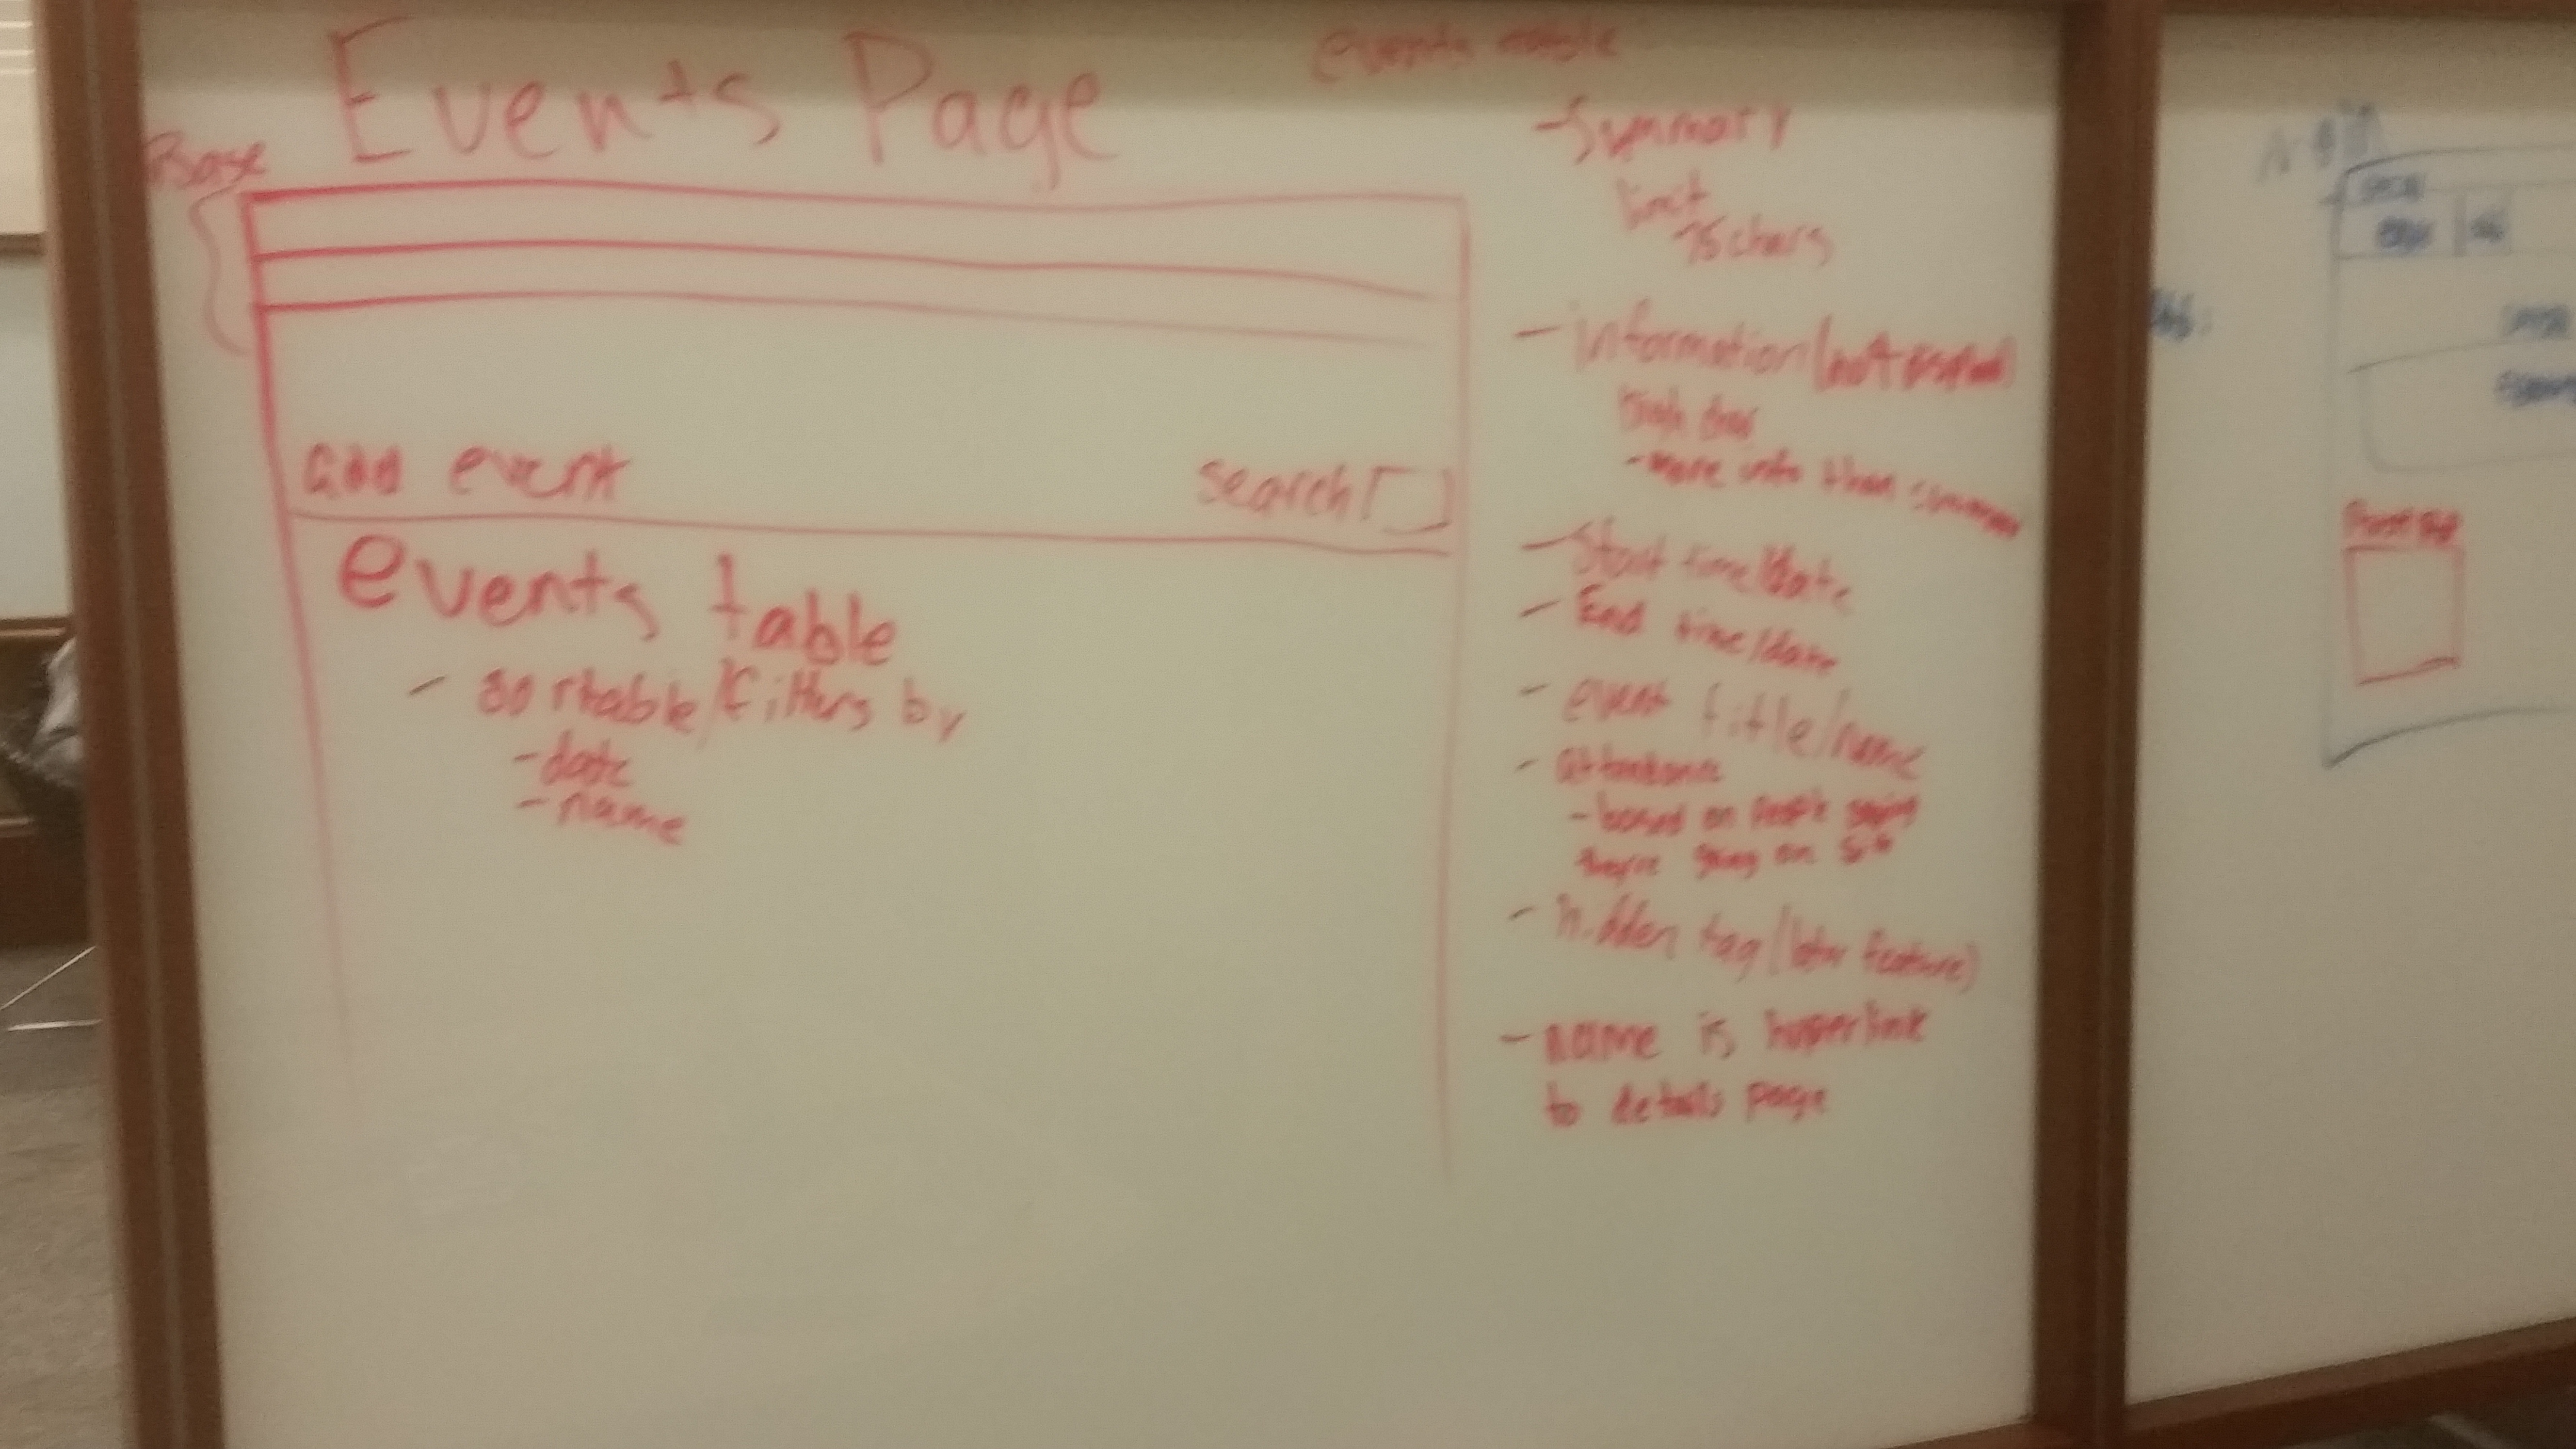 Events Page
Base
add event
search
events table
- sortable/filters by
- date
- name
events table
- Summary
limit
75 chars
- information (not
high char
- more info than summary
- Start time/date
- End time/date
- event title/name
- attendance
- based on people saying
they're going on site
- hidden tag (later feature)
- name is hyperlink
to details page